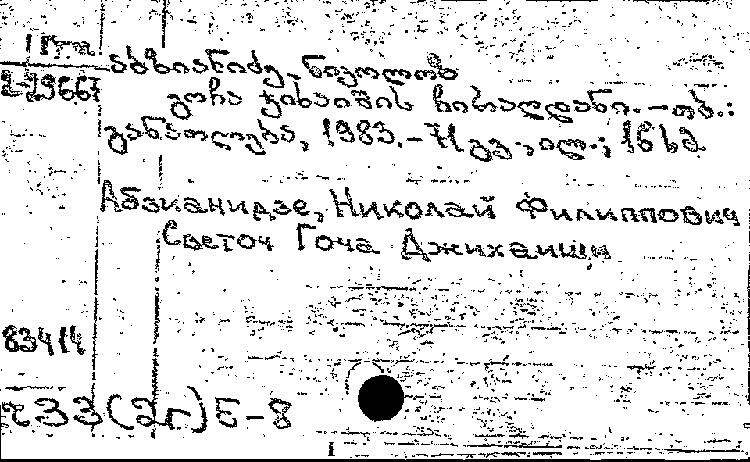 აბზიანიძე, ნიკოლოზ
2-29667
გოჩა ჯიხაიშის ჩირაღდანი. – თბ.:
განათლება, 1983. – 71 გვ., ილ.; 16 სმ
Абзианидзе, Николай Филиппович
Светоч Гоча Джихаишци
83414
(2г) 5 – 8